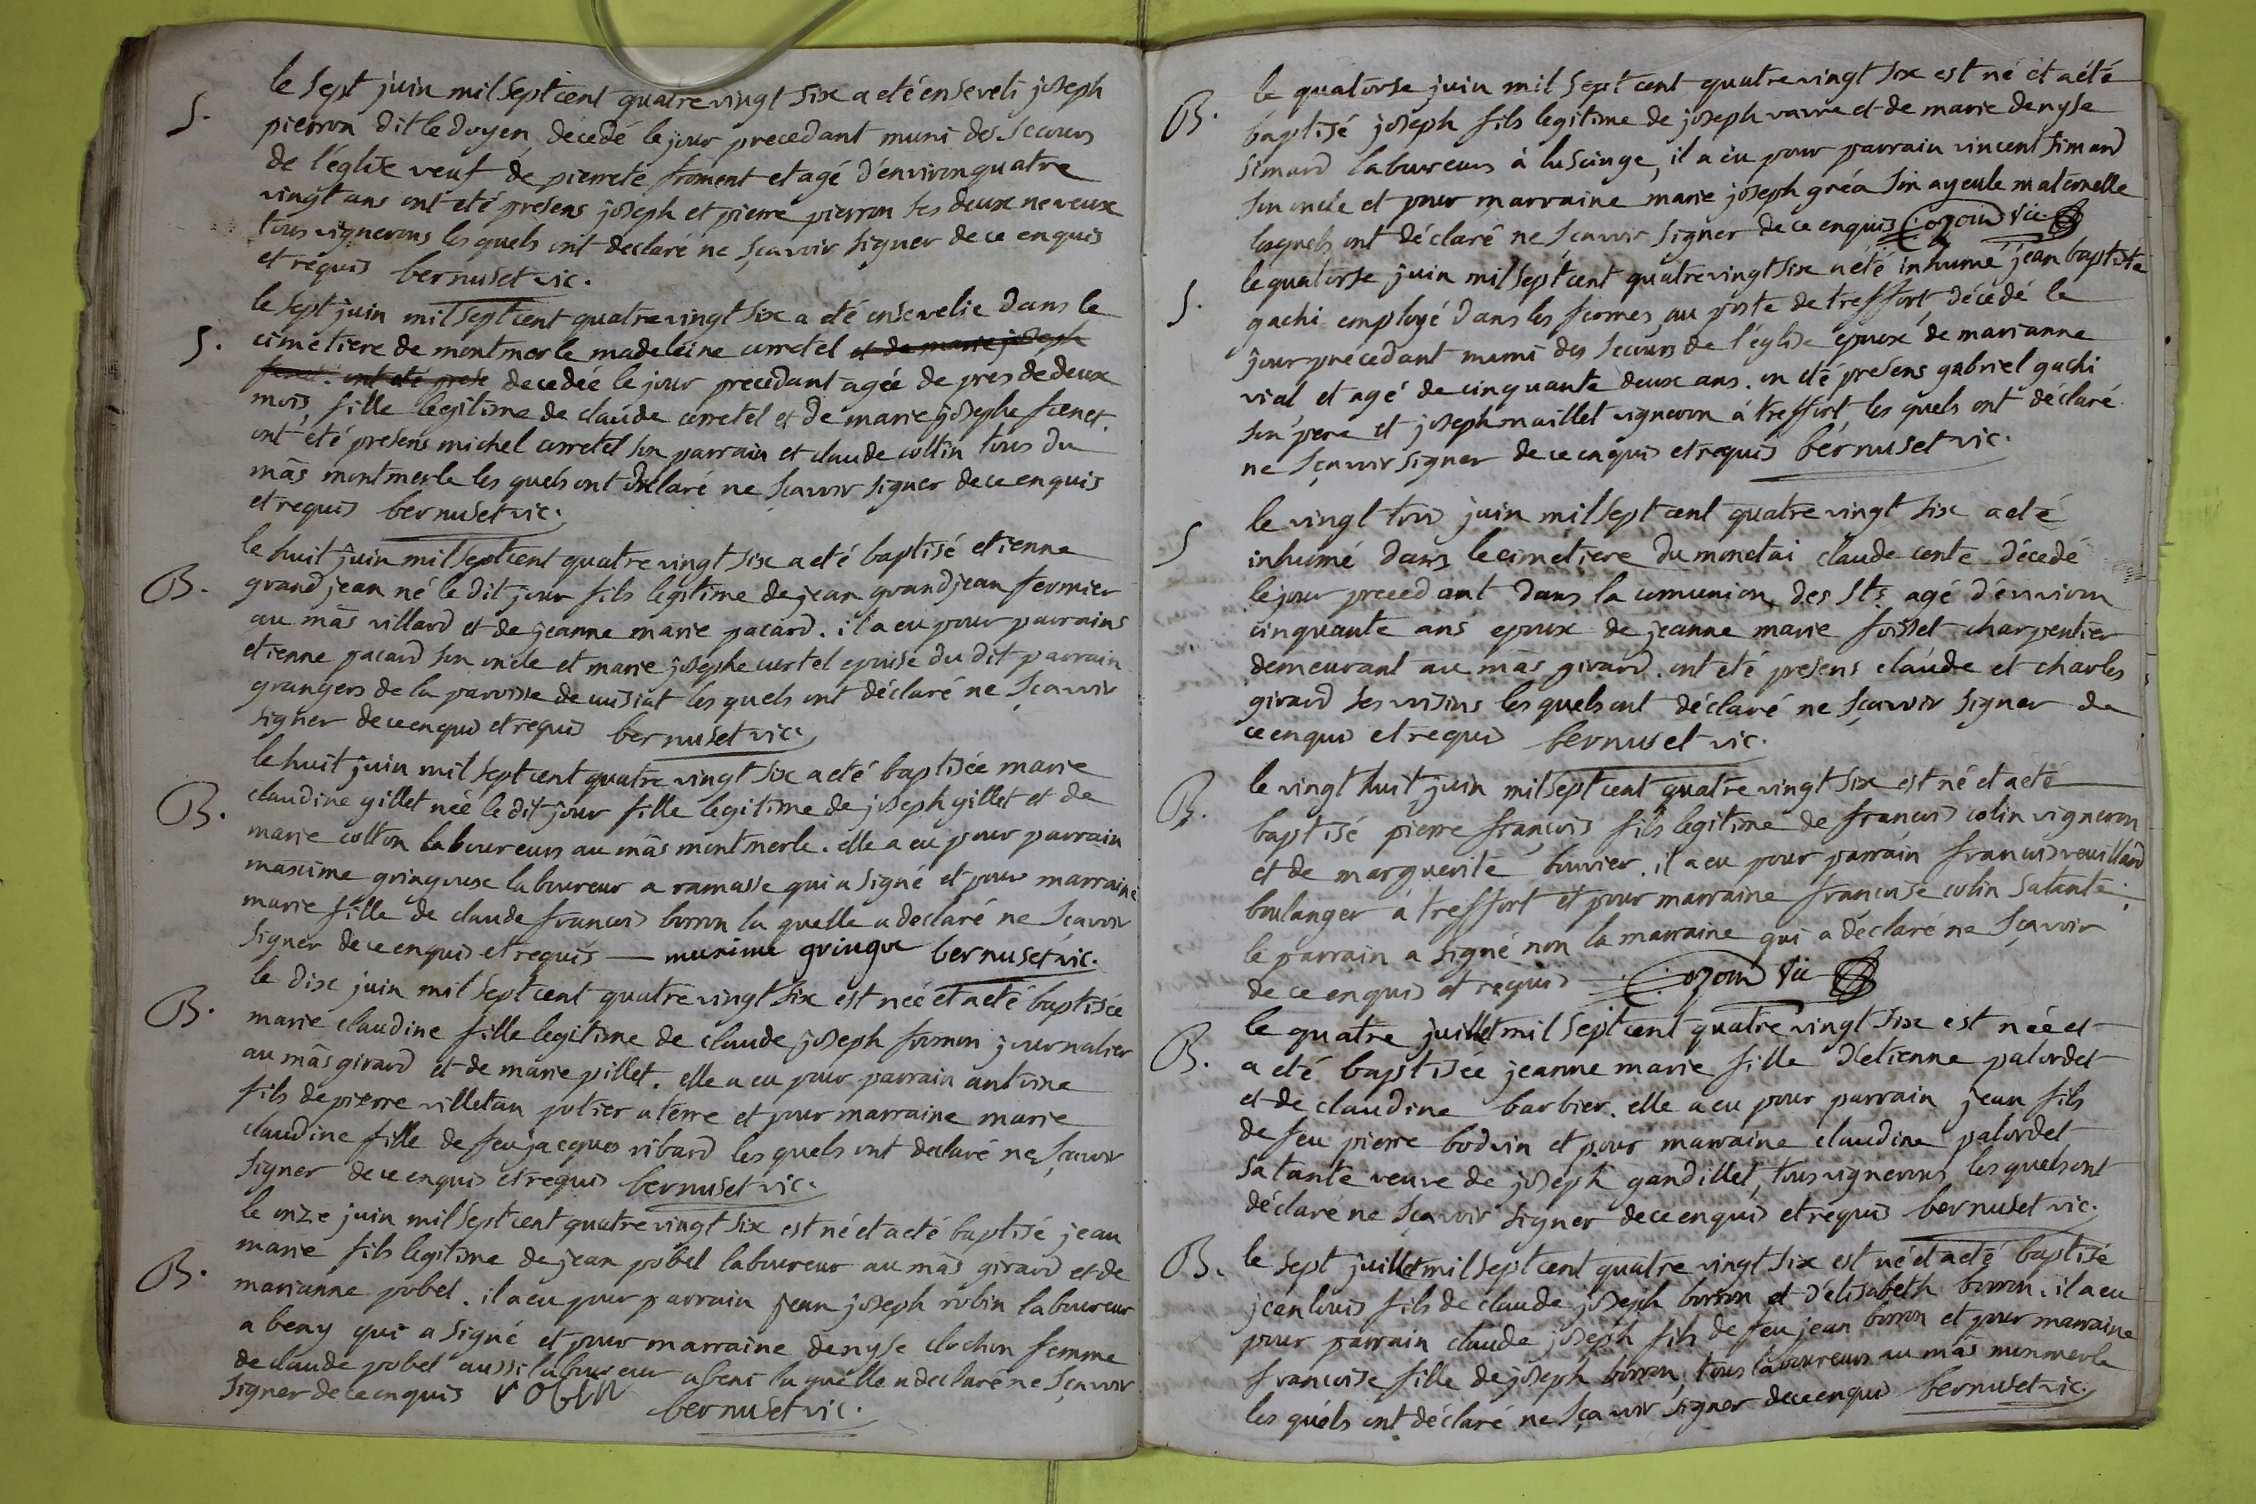 le sept juin mil sept cent quatre vingt six a eté enseveli joseph
S. pierron dit le doyen, décedé le jour precedant muni des secours
de l'église veuf de pierrete froment et agé d'environ quatre
vingt ans ont eté presens joseph et pierre pierron ses deux neveux
tous vignerons lesquels ont declaré ne sçavoir signer de ce enquis
et requis bernuset vic.
le sept juin mil sept cent quatre vingt six a eté ensevelie dans le
S. cimetiere de montmerle madeleine corretel et de marie joseph
decedée le jour precedant agée de près de deux
mois, fille legitime de claude corretel et de marie josephe
ont été presens michel corretel son parrain et claude collin tous du
mâs montmerle les quels ont déclaré ne sçavoir signer de ce enquis
et requis bernuset vic.
le huit juin mil sept cent quatre vingt six a eté baptisé etienne
B. grandjean né le dit jour fils legitime de jean grandjean fermier
au mâs villard et de jeanne marie pacard. il a eu pour parrains
etienne pacard son oncle et marie josephe curtel epouse du dit parrain
grangers de la paroisse de cuisiat les quels ont déclaré ne sçavoir
signer de ce enquis et requis bernuset vic.
le huit juin mil sept cent quatre vingt six a eté baptisée marie
B. claudine gillet née le dit jour fille legitime de joseph gillet et de
marie colton laboureurs au mâs montmerle. elle a eu pour parrain
maxime gringoux laboureur a ramasse qui a signé et pour marraine
marie fille de claude francois borron la quelle a declaré ne sçavoir
signer de ce enquis et requis — maxime gringoux bernuset vic.
le dix juin mil sept cent quatre vingt six est née et a eté baptisée
B. marie claudine fille legitime de claude joseph formon journalier
au mâs girard et de marie pillet. elle a eu pour parrain antoine
fils de pierre villetan potier a terre et pour marraine marie
claudine fille de feu jacques ribard les quels ont declaré ne sçavoir
signer de ce enquis et requis bernuset vic.
le onze juin mil sept cent quatre vingt six est né et a eté baptisé jean
marie fils legitime de jean pobel laboureur au mâs girard et de
B. marianne pobel. il a eu pour parrain jean joseph robin laboureur
a beny qui a signé et pour marraine denyse clochon femme
de claude pobel aussi laboureur a beni la quelle a declaré ne sçavoir
signer de ce enquis robin bernuset vic.
le quatorse juin mil sept cent quatre vingt six est né et a été
B. baptisé joseph fils legitime de joseph vavre et de marie denyse
simard laboureurs à lucinge, il a eu pour parrain vincent simard
son oncle et pour marraine marie joseph gréa son ayeule maternelle
lesquels ont déclaré ne sçavoir signer de ce enquis Cozoin vic
le quatorse juin mil sept cent quatre vingt six a eté inhumé jean baptiste
S. gachi employé dans les fermes au poste de treffort, décédé le
jour précedant muni des secours de l'église epoux de marianne
vial et agé de cinquante deux ans. on eté presens gabriel gachi
son pere et joseph maillet vigneron à treffort, les quels ont déclaré
ne sçavoir signer de ce enquis et requis bernuset vic.
le vingt trois juin mil sept cent quatre vingt six a eté
S inhumé dans le cimetiere du monetai claude conte décedé
le jour precedant dans la comunion des Sts agé d'environ
cinquante ans epoux de jeanne marie foisset charpentier
demeurant au mâs girard. ont eté presens claude et charles
girard ses voisins les quels ont déclaré ne sçavoir signer de
ce enquis et requis bernuset vic.
le vingt huit juin mil sept cent quatre vingt six est né et a eté
B. baptisé pierre françois fils legitime de francois colin vigneron
et de marguerite bouvier. il a eu pour parrain francois reuillard
boulanger à treffort et pour marraine francoise colin sa tante.
le parrain a signé non la marraine qui a déclaré ne sçavoir
de ce enquis et requis — Cozoin vic
le quatre juillet mil sept cent quatre vingt six est née et
B. a eté baptisée jeanne marie fille d'etienne palordet
et de claudine barbier. elle a eu pour parrain jean fils
de feu pierre bodvin et pour marraine claudine palordet
sa tante veuve de joseph gandillet, tous vignerons les quels ont
déclaré ne sçavoir signer de ce enquis et requis bernuset vic.
B. le sept juillet mil sept cent quatre vingt six est né et a eté baptisé
jean louis fils de claude joseph borron et d'elisabeth borron. il a eu
pour parrain claude joseph fils de feu jean borron et pour marraine
francoise fille de joseph borron, tous laboureurs au mâs monmerle
les quels ont déclaré ne sçavoir signer de ce enquis bernuset vic.